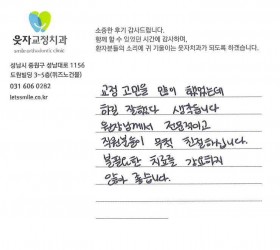 웃자교정치과
smile orthodontic clinic
성남시 중원구 성남대로 1156
도한빌딩 3~5층(위즈노건물)
031 606 0282
letssmile.co.kr
소중한 후기 감사드립니다.
함께 할 수 있었던 시간에 감사하며,
환자분들의 소리에 귀 기울이는 웃자치과가 되도록 하겠습니다.
교정 고민을 많이 했었는데
하길 잘했다 생각듭니다
원장님께서 전문적이고
직원분들이 무척 친절하십니다.
불필요한 치료를 강요하지
않아 좋습니다.